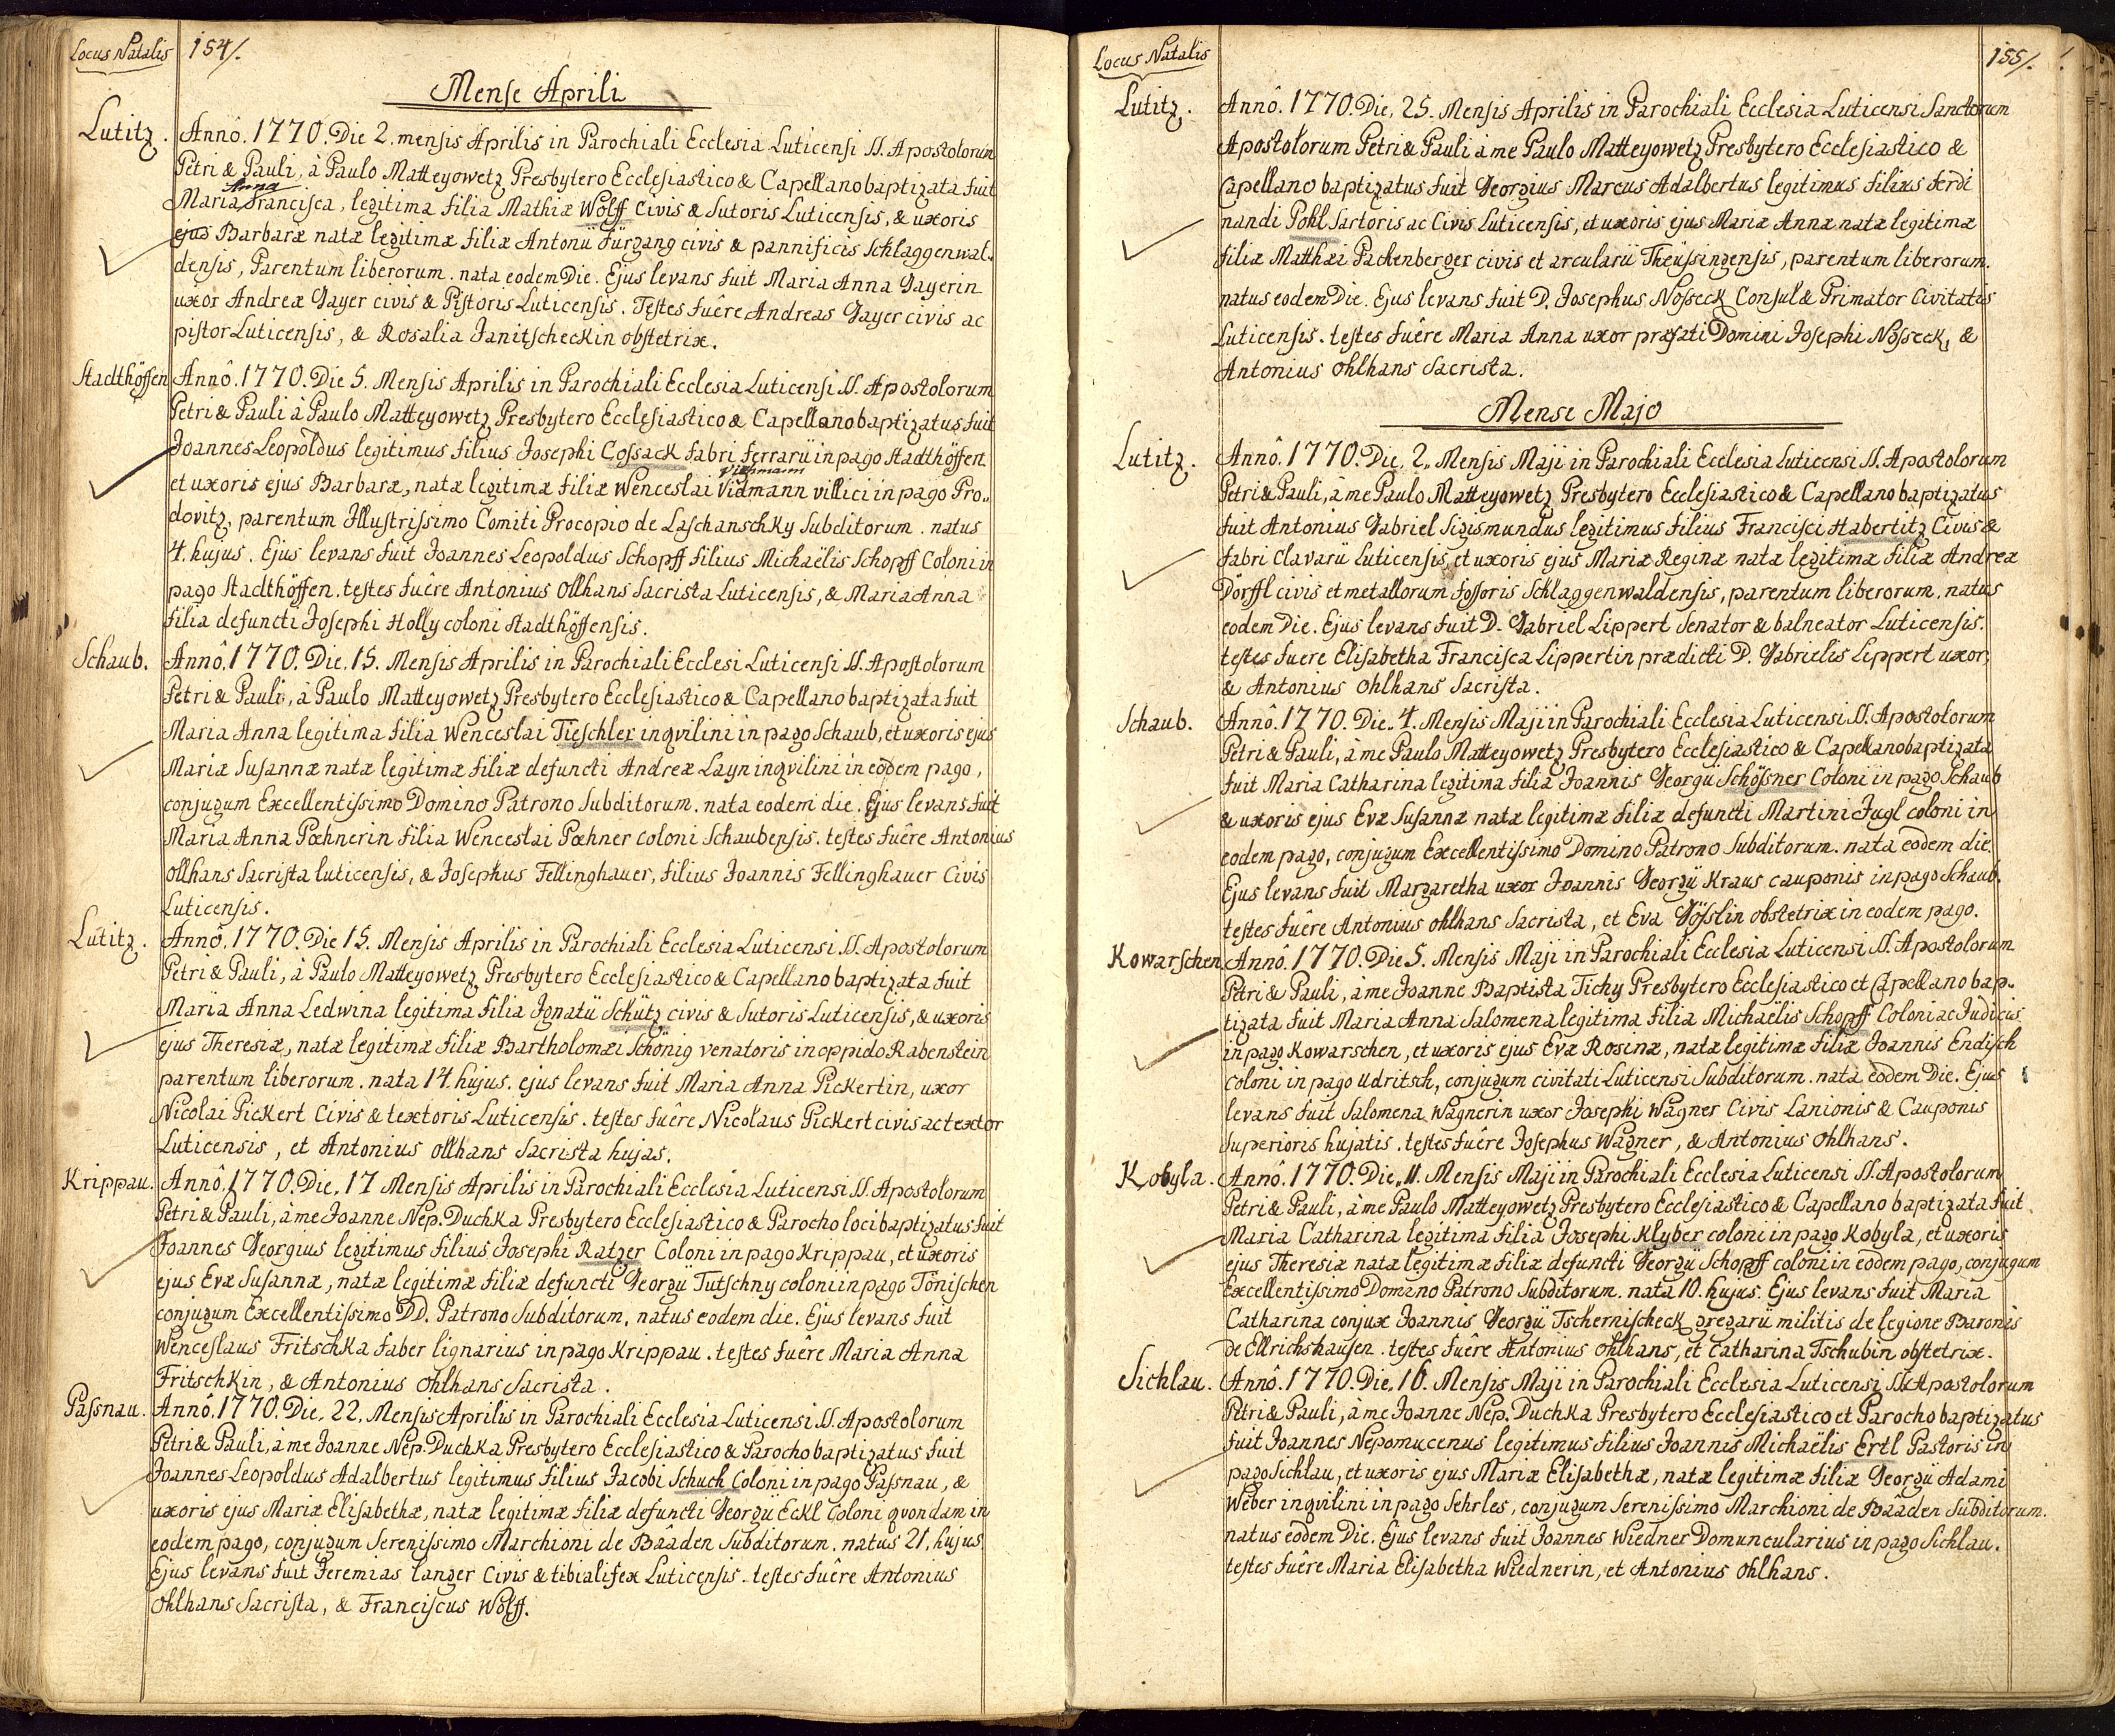 Locus Natalis 154/.
Mense Aprili
Lutitz. Annô. 1770. Die 2. mensis Aprilis in Parochiali Ecclesia Luticensi SS. Apostolorum
Petri & Pauli, à Paulo Matteyowetz Presbytero Ecclesiastico & Capellano baptizata fuit
Anna
Maria Francisca, legitima filia Mathiæ Wolff Civis & Sutoris Luticensis, & uxoris
ejus Barbaræ natæ legitimæ filiæ Antonii Fürgang civis & pannificis Schlaggenwal-
densis, Parentum liberorum. nata eodem Die. Ejus levans fuit Maria Anna Gayerin
uxor Andreæ Gayer civis & Pistoris Luticensis. Testes fuêre Andreas Gayer civis ac
pistor Luticensis, & Rosalia Janitscheckin obstetrix.
Stadthöffen Annô. 1770. Die 5. Mensis Aprilis in Parochiali Ecclesia Luticensi SS. Apostolorum
Petri & Pauli à Paulo Matteyowetz Presbytero Ecclesiastico & Capellano baptizatus fuit
Joannes Leopoldus legitimus filius Josephi Cossack fabri ferrarii in pago Stadthöffen
Viehmann
et uxoris ejus Barbaræ, natæ legitimæ filiæ Wenceslai Vidmann villici in pago Pro„
dovitz, parentum Illustrissimo Comiti Procopio de Laschanschky Subditorum. natus
4. hujus. Ejus levans fuit Joannes Leopoldus Schopff filius Michaëlis Schopff Coloni in
pago Stadthöffen. testes fuêre Antonius Ollhans Sacrista Luticensis, & Maria Anna
filia defuncti Josephi Holly coloni Stadthöffensis.
Schaub. Annô. 1770. Die. 15. Mensis Aprilis in Parochiali Ecclesi Luticensi SS. Apostolorum
Petri & Pauli, à Paulo Matteyowetz Presbytero Ecclesiastico & Capellano baptizata fuit
Maria Anna legitima filia Wenceslai Tieschler inqvilini in pago Schaub, et uxoris ejus
Mariæ Susannæ natæ legitimæ filiæ defuncti Andreæ Layn inqvilini in eodem pago,
conjugum Excellentissimo Domino Patrono Subditorum. nata eodem die. Ejus levans fuit
Maria Anna Pœhnerin filia Wenceslai Pœhner coloni Schaubensis. testes fuêre Antonius
Ollhans Sacrista luticensis, & Josephus Fellinghauer, filius Joannis Fellinghauer Civis
Luticensis.
Lutitz. Annô. 1770. Die 15. Mensis Aprilis in Parochiali Ecclesia Luticensi SS. Apostolorum
Petri & Pauli, à Paulo Matteyowetz Presbytero Ecclesiastico & Capellano baptizata fuit
Maria Anna Ledwina legitima filia Ignatii Schütz civis & Sutoris Luticensis, & uxoris
ejus Theresiæ, natæ legitimæ filiæ Bartholomæi Schönig venatoris in oppido Rabenstein
parentum liberorum. nata 14. hujus. ejus levans fuit Maria Anna Pickertin, uxor
Nicolai Pickert Civis & textoris Luticensis. testes fuêre Nicolaus Pickert civis ac textor
Luticensis, et Antonius Ollhans Sacrista hujas.
Krippau. Annô. 1770. Die. 17 Mensis Aprilis in Parochiali Ecclesia Luticensi SS. Apostolorum
Petri & Pauli, à me Joanne Nep. Duchka Presbytero Ecclesiastico & Parocho loci baptizatus fuit
Joannes Georgius legitimus filius Josephi Ratzer Coloni in pago Krippau, et uxoris
ejus Evæ Susannæ, natæ legitimæ filiæ defuncti Georgii Tutschny coloni in pago Tönischen
conjugum Excellentissimo DD. Patrono Subditorum, natus eodem die. Ejus levans fuit
Wenceslaus Fritschka faber lignarius in pago Krippau. testes fuêre Maria Anna
Fritschkin, & Antonius Ohlhans Sacrista.
Passnau. Annô. 1770. Die. 22. Mensis Aprilis in Parochiali Ecclesia Luticensi SS. Apostolorum
Petri & Pauli, à me Joanne Nep. Duchka Presbytero Ecclesiastico & Parocho baptizatus fuit
Joannes Leopoldus Adalbertus legitimus filius Jacobi Schuch Coloni in pago Passnau, &
uxoris ejus Mariæ Elisabethæ, natæ legitimæ filiæ defuncti Georgii Eckl Coloni qvondam in
eodem pago, conjugum Serenissimo Marchioni de Bâaden Subditorum. natus 21. hujus.
Ejus levans fuit Jeremias langer Civis & tibialifex Luticensis. testes fuêre Antonius
Ohlhans Sacrista, & Franciscus Wolff.
Locus Natalis 155/.
Lutitz. Annô. 1770. Die. 25. Mensis Aprilis in Parochiali Ecclesia Luticensi Sanctorum
Apostolorum Petri & Pauli à me Paulo Matteyowetz Presbytero Ecclesiastico &
Capellano baptizatus fuit Georgius Marcus Adalbertus legitimus filius ferdi
nandi Pohl Sartoris ac Civis Luticensis, et uxoris ejus Mariæ Annæ natæ legitimæ
filiæ Matthæi Packenberger civis et arcularii Theussingensis, parentum liberorum.
natus eodem Die. Ejus levans fuit D. Josephus Nosseck Consul & Primator Civitatis
Luticensis. testes fuêre Maria Anna uxor præfati Domini Josephi Nosseck, &
Antonius Ohlhans Sacrista.
Mense Majo
Lutitz. Annô. 1770. Die. 2„ Mensis Maji in Parochiali Ecclesia Luticensi SS. Apostolorum
Petri & Pauli, à me Paulo Matteyowetz Presbytero Ecclesiastico & Capellano baptizatus
fuit Antonius Gabriel Sigismundus legitimus filius Francisci Habertitz Civis &
fabri Clavarii Luticensis, et uxoris ejus Mariæ Reginæ natæ legitimæ filiæ Andreæ
Dörffl civis et metallorum fossoris Schlaggenwaldensis, parentum liberorum. natus
eodem Die. Ejus levans fuit D. Gabriel Lippert Senator & balneator Luticensis.
testes fuere Elisabetha Francisca Lippertin prædicti D. Gabrielis Lippert uxor,
& Antonius Ohlhans Sacrista.
Schaub. Annô. 1770. Die„ 4. Mensis Maji in Parochiali Ecclesia Luticensi SS. Apostolorum
Petri & Pauli, à me Paulo Matteyowetz Presbytero Ecclesiastico & Capellano baptizata
fuit Maria Catharina legitima filia Joannis Georgii Schössner Coloni in pago Schaub
& uxoris ejus Evæ Susannæ natæ legitimæ filiæ defuncti Martini Jugl coloni in
eodem pago, conjugum Excellentissimo Domino Patrono Subditorum. nata eodem die.
Ejus levans fuit Margaretha uxor Joannis Georgii Kraus cauponis in pago Schaub.
testes fuêre Antonius Ohlhans Sacrista, et Eva Gösslin obstetrix in eodem pago.
Kowarschen. Annô. 1770. Die 5. Mensis Maji in Parochiali Ecclesia Luticensi SS. Apostolorum
Petri & Pauli, à me Joanne Baptista Tichy Presbytero Ecclesiastico et Capellano bap„
tizata fuit Maria Anna Salomena legitima filia Michaëlis Schopff Coloni ac Judicis
in pago Kowarschen, et uxoris ejus Evæ Rosinæ, natæ legitimæ filiæ Joannis Endisch
coloni in pago Udritsch, conjugum civitati Luticensi Subditorum. nata eodem Die. Ejus
levans fuit Salomena Wagnerin uxor Josephi Wagner Civis Lanionis & Cauponis
superioris hujatis. testes fuêre Josephus Wagner, & Antonius Ohlhans.
Kobyla. Annô. 1770. Die„ 11. Mensis Maji in Parochiali Ecclesia Luticensi SS. Apostolorum
Petri & Pauli, à me Paulo Matteyowetz Presbytero Ecclesiastico & Capellano baptizata fuit
Maria Catharina legitima filia Josephi Klyber coloni in pago Kobyla, et uxoris
ejus Theresiæ natæ legitimæ filiæ defuncti Georgii Schopff coloni in eodem pago, conjugum
Excellentissimo Domino Patrono Subditorum. nata 10. hujus. Ejus levans fuit Maria
Catharina conjux Joannis Georgii Tschernischeck gregarii militis de legione Baronis
de Ellrichshausen. testes fuêre Antonius Ohlhans, et Catharina Tschubin obstetrix.
Sichlau. Annô. 1770. Die„ 16. Mensis Maji in Parochiali Ecclesia Luticensi SS. Apostolorum
Petri & Pauli, à me Joanne Nep. Duchka Presbytero Ecclesiastico et Parocho baptizatus
fuit Joannes Nepomucenus legitimus filius Joannis Michaëlis Ertl Pastoris in
pago Sichlau, et uxoris ejus Mariæ Elisabethæ, natæ legitimæ filiæ Georgii Adami
Weber inqvilini in pago Sehrles, conjugum Serenissimo Marchioni de Bâaden Subditorum.
natus eodem Die. Ejus levans fuit Joannes Wiedner Domuncularius in pago Sichlau.
testes fuêre Maria Elisabetha Wiednerin, et Antonius Ohlhans.